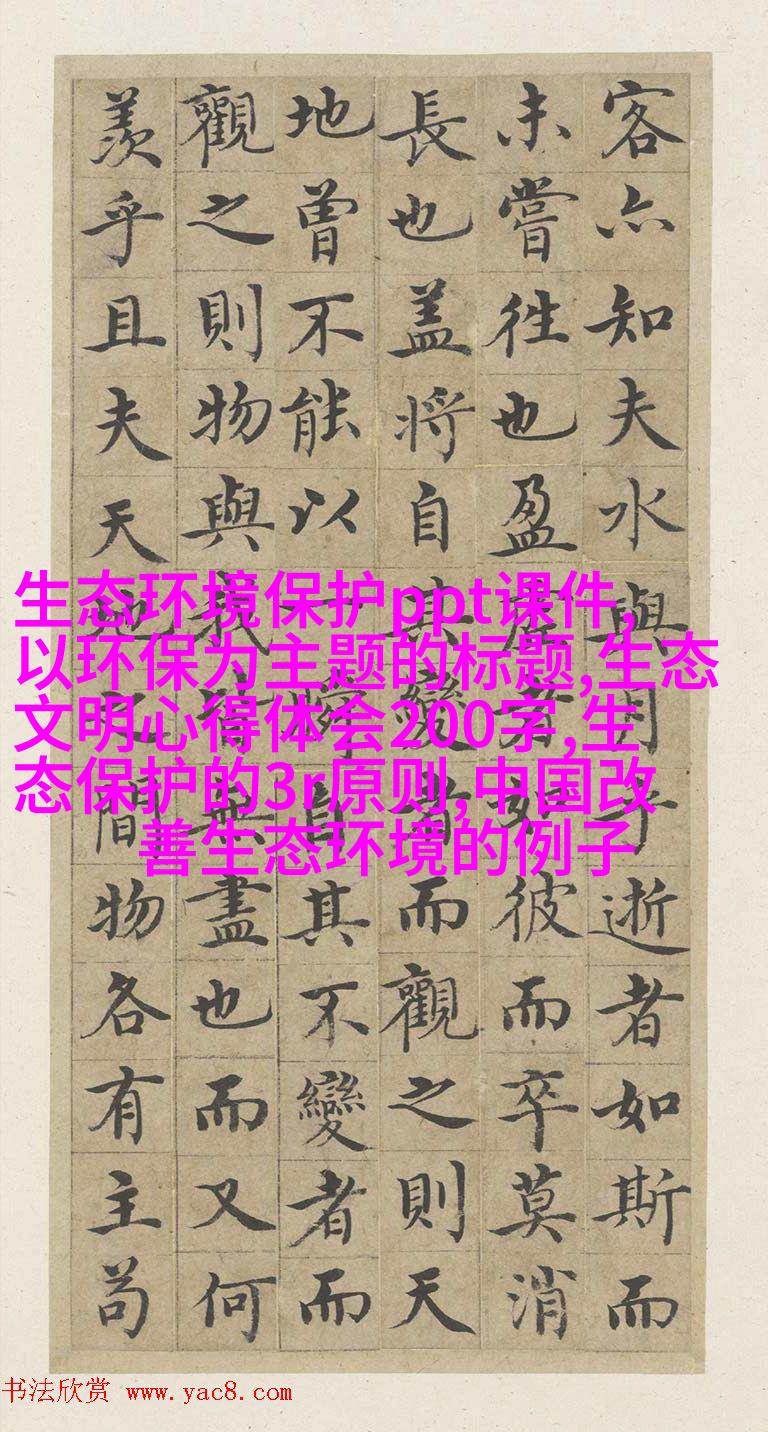 客亦知夫水與月乎逝者如斯而
未嘗往也盈虛者如彼而卒莫消
長也盖將自其變者而觀之則天
地曾不能以一瞬自其不變者而
觀之則物與我皆無盡也而又何
羨乎且夫天地之間物各有主苟
生态环境保护ppt课件,
以环保为主题的标题,生态
文明心得体会200字,生
态保护的3r原则,中国改
善生态环境的例子
书法欣赏 www.yac8.com